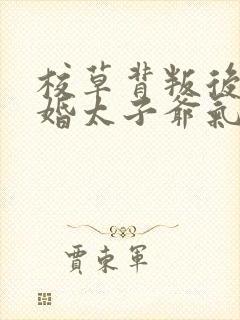 校草背叛後
婚太子爺氣
賈東軍